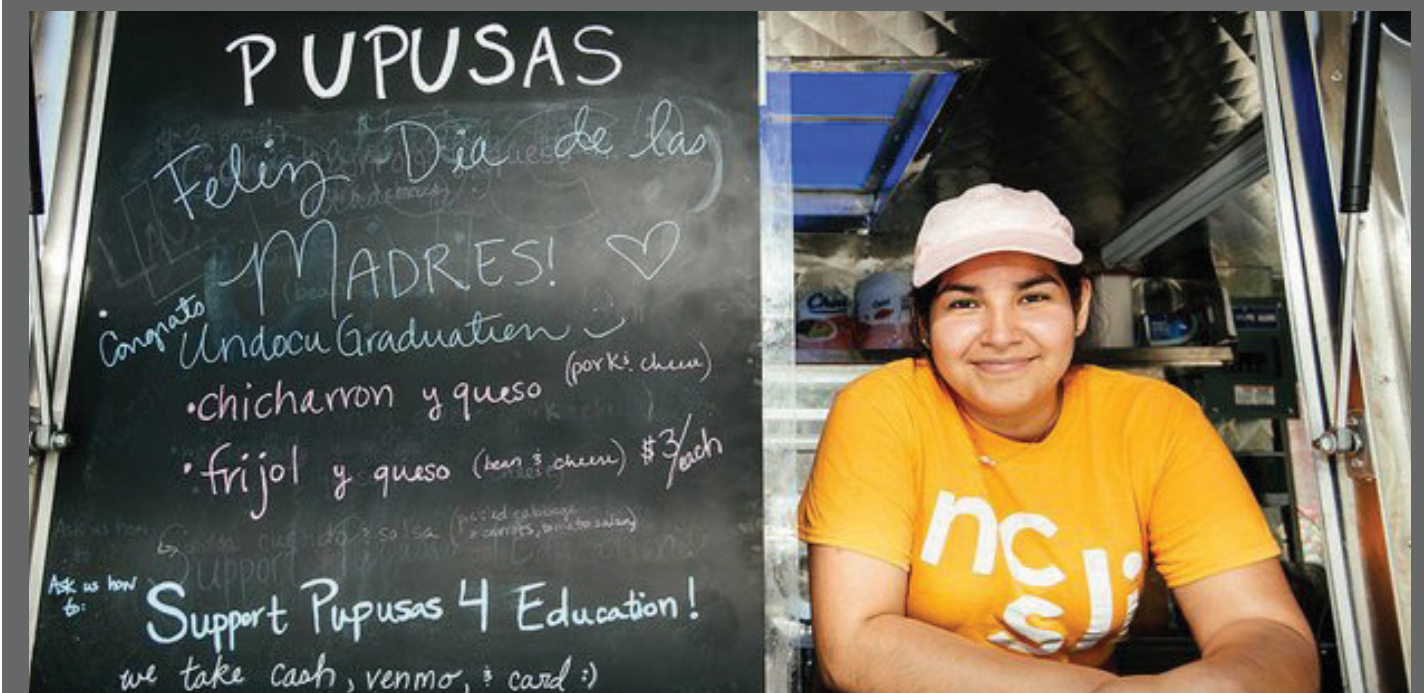 PUPUSAS
Feliz Día de las
MADRES!
Congrats
UndocuGraduation
•chicharron y queso (pork & cheese)
•frijol y queso (bean & cheese) $3/each
curtido & salsa (pickled cabbage
& carrots, tomato salsa)
Ask us how
to:
Support Pupusas 4 Education!
we take cash, venmo, & card :)
nc
sli